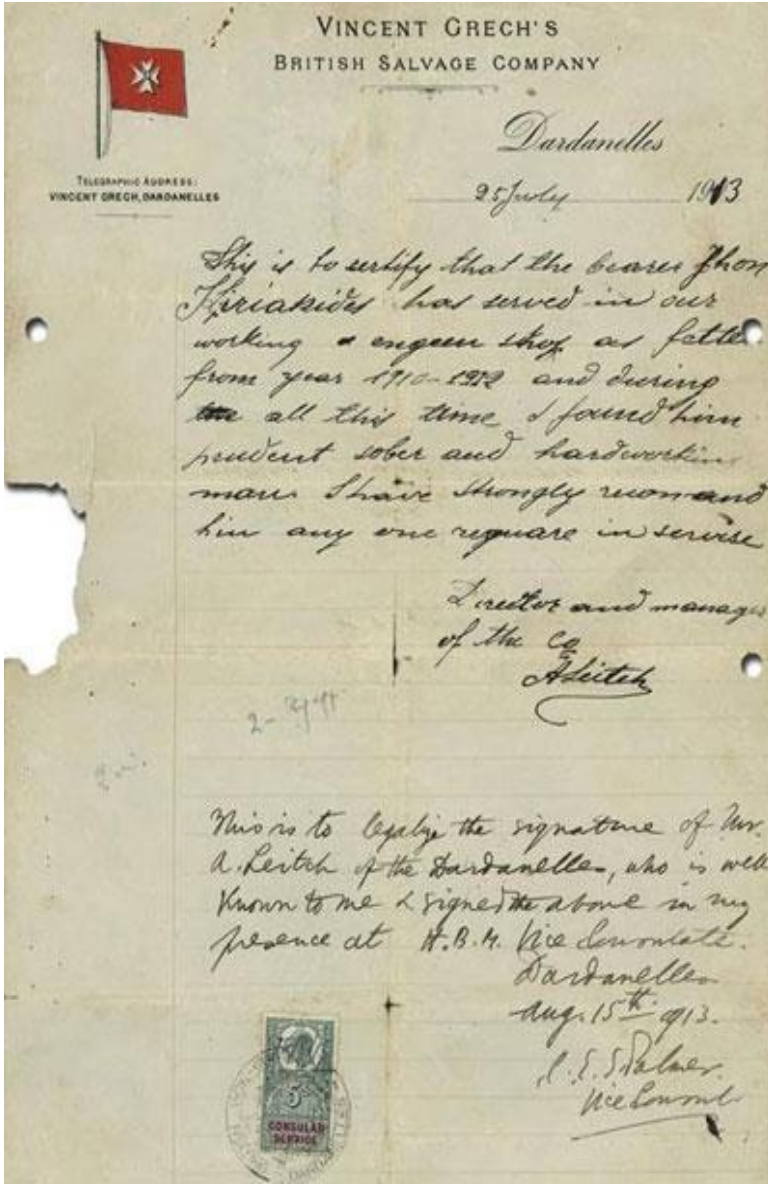 VINCENT GRECH'S
BRITISH SALVAGE COMPANY
TELEGRAPHIC ADDRESS:
VINCENT GRECH, DARDANELLES
Dardanelles
25 July 1913
This is to sertify that the bearer Jhon
Kiriakides has served in our
working engeen shop as fetter
from year 1910-1912 and during
all this time I found him
prudent sober and hardworking
man. I have strongly recomand
him any one requare in servise
Director and manager
of the Co
A Leitch
This is to legalize the signature of Mr.
A. Leitch of the Dardanelles, who is well
known to me & signed the above in my
presence at H.B.M. Vice Consulate.
Dardanelles
Aug. 15th 1913.
C. E. S. Palmer.
Vice Consul
5
CONSULAR
SERVICE